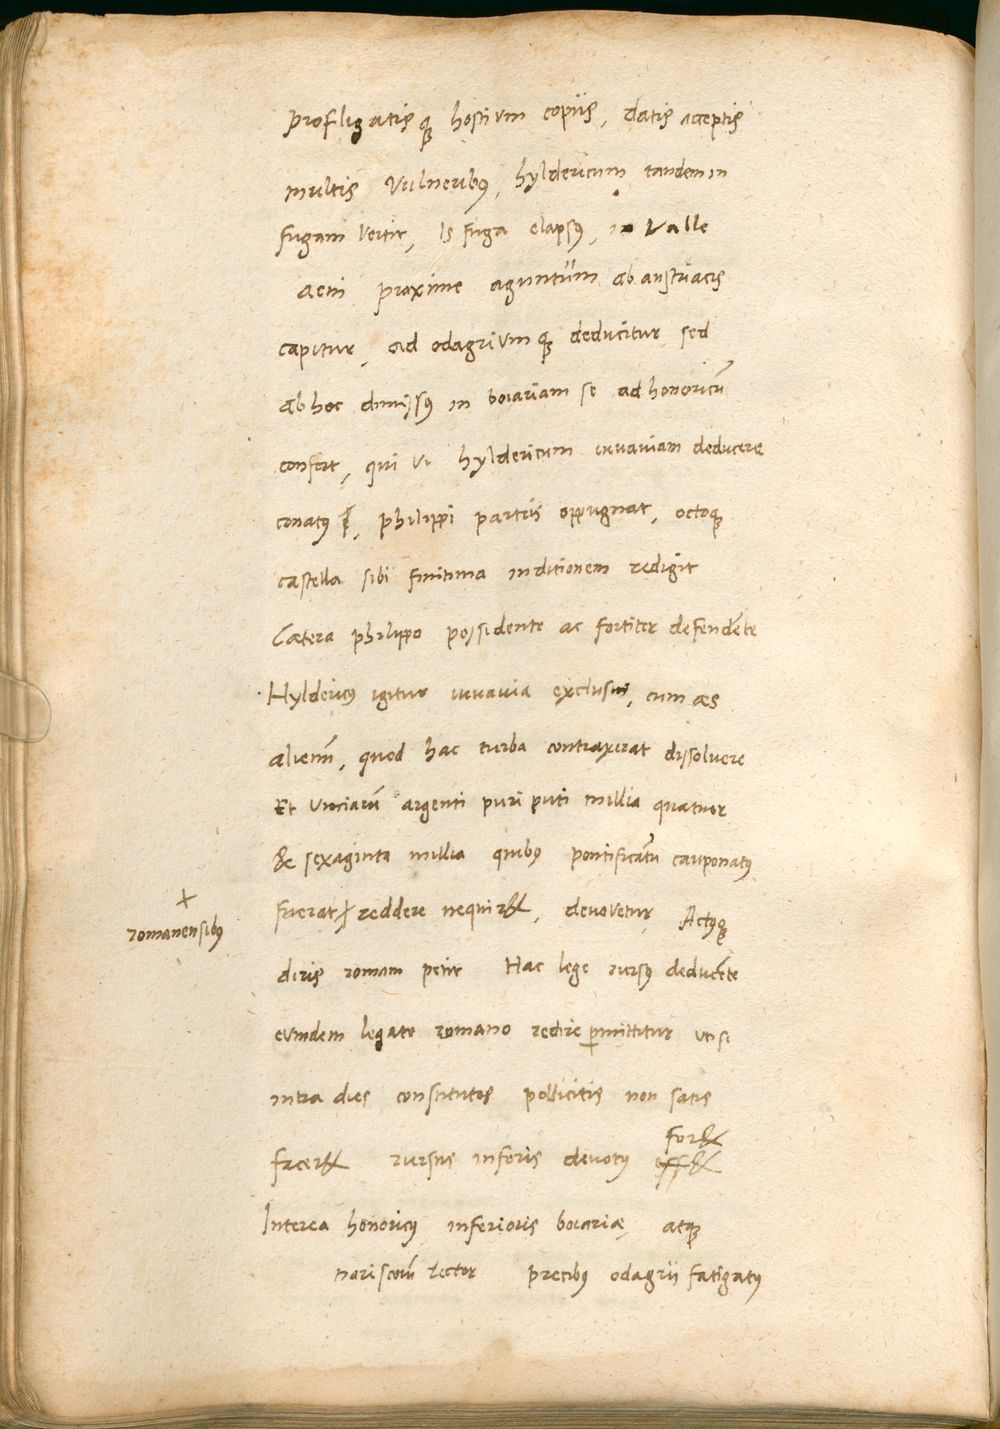 profligatisq; hostium copiis, datis acceptis
multis vulneribꝰ, hyldericum tandem in
fugam vertit, Is fuga elapsꝰ, in valle
aeni proxime aguntum ab austriacis
capitur, ad odagriumq; deducitur, sed
ab hoc dimissꝰ in boiariam se ad honoricū
confert, qui vt hyldericum iuuauiam deducere
conatꝰ, philippi partis oppugnat, octoq;
castella sibi finitima in ditionem redigit
Cætera philippo possidente ac fortiter defendēte
Hyldericꝰ igitur iuuauia exclusus, cum æs
alienū, quod hac turba contraxerat dissoluere
Et vnciarū argenti puri puti millia quatuor
& sexaginta millia quibꝰ pontificatū cauponatꝰ
fuerat reddere nequir&, deuovetur, Actꝰq;
+
romanensibꝰ
diris romam petit Hac lege rursꝰ deducēte
eumdem legato romano redire ꝑmittitur vt si
intra dies constitutos pollicitis non satis
facer& rursus inferis deuotꝰ ess&
for&
Interea honoricꝰ inferioris boiariæ, atq;
noriscorū rector precibꝰ odagrii fatigatꝰ